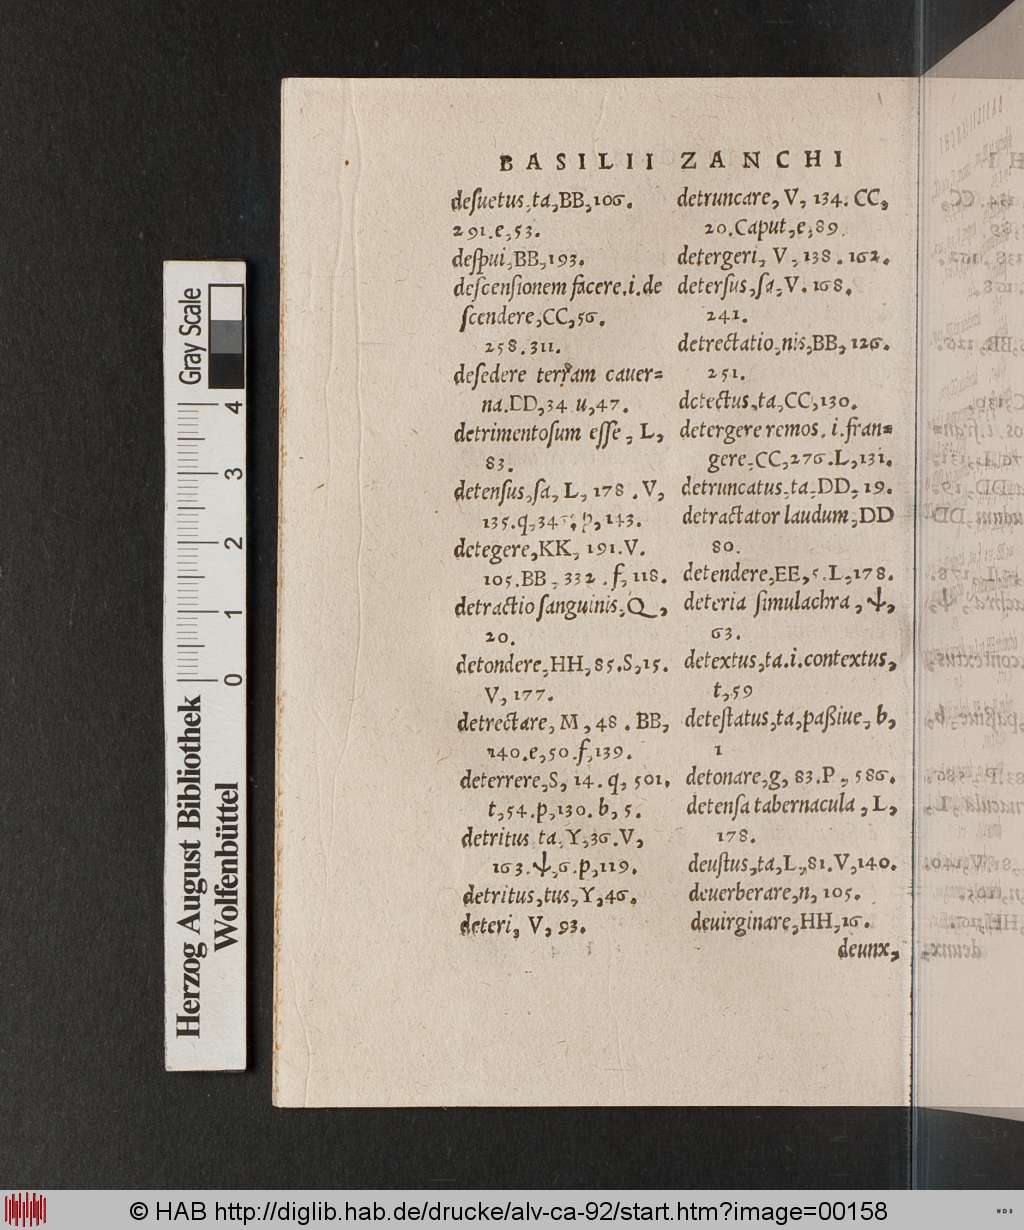 BASILII ZANCHI
desuetus,ta,BB,106.
291.e,53.
despui,BB,193.
descensionem facere.i.de
scendere,CC,56.
258.311.
desedere terram cauer=
na.DD,34 u,47.
detrimentosum esse, L,
83.
detensus,sa, L, 178 . V,
135.q,34 p,143.
detegere,KK, 191.V.
105.BB , 332 . f, 118.
detractio sanguinis, Q,
20.
detondere,HH, 85.S,15.
V, 177.
detrectare, M, 48 . BB,
140.e,50.f,139.
deterrere,S, 14. q, 501.
t,54.p,130. b, 5.
detritus ta, Y,36.V,
163.ψ,6.p,119.
detritus,tus, Y,46.
deteri, V, 93.
detruncare, V, 134. CC,
20.Caput,e,89.
detergeri, V, 138 . 162.
detersus,sa, V. 168.
241.
detrectatio,nis,BB, 126.
251.
detectus,ta,CC,130.
detergere remos, i.fran=
gere,CC,276.L,131.
detruncatus,ta,DD, 19.
detractator laudum,DD
80.
detendere,EE, 5.L,178.
deteria simulachra, ψ,
63.
detextus,ta.i.contextus,
t,59
detestatus,ta,paßiue, b,
1
detonare,g, 83.P , 586.
detensa tabernacula , L,
178.
deustus,ta,L,81.V,140.
deuerberare,n, 105.
deuirginare,HH,16.
deunx,
Gray Scale
4
3
2
1
0
Herzog August Bibliothek
Wolfenbüttel
© HAB http://diglib.hab.de/drucke/alv-ca-92/start.htm?image=00158